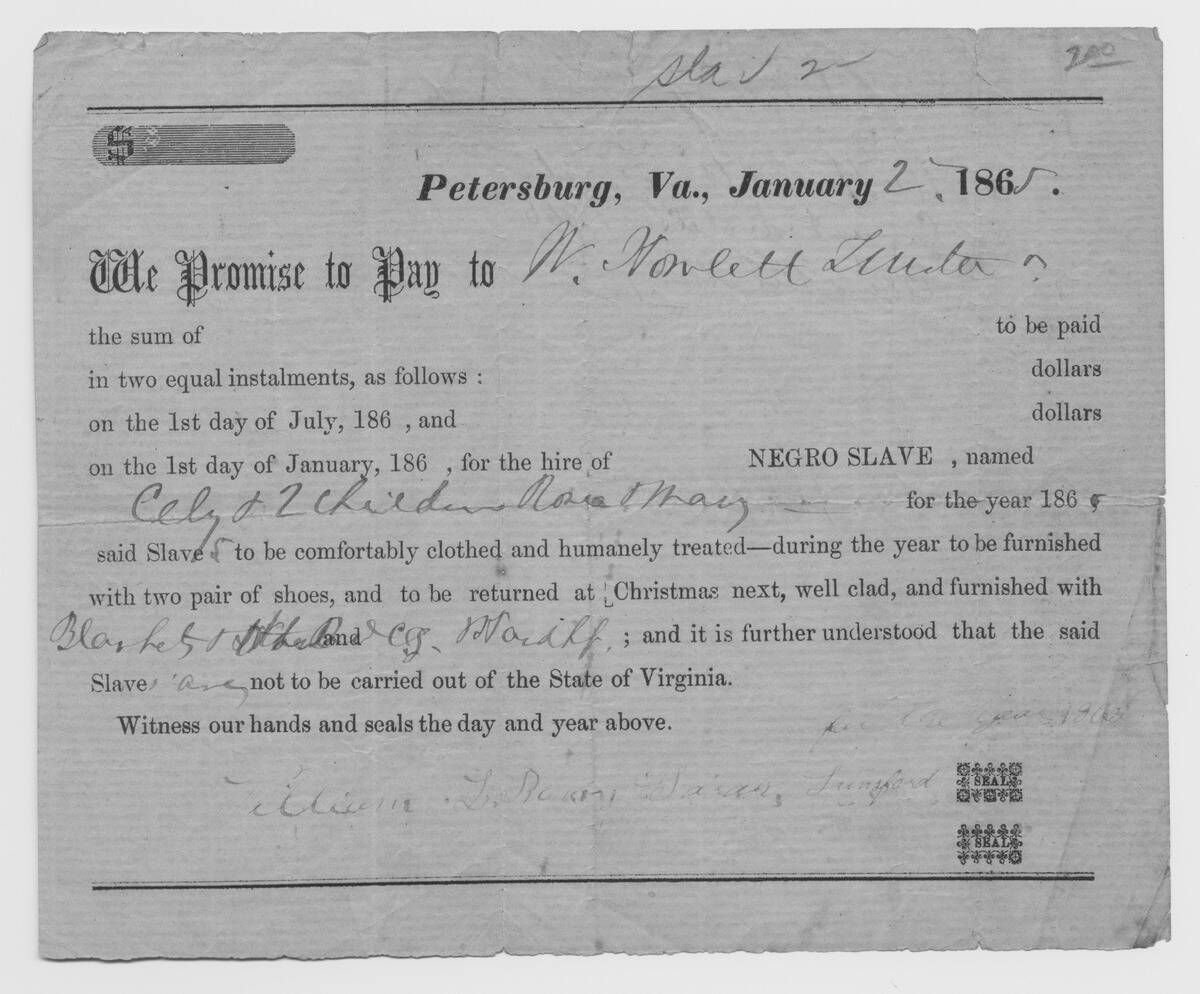 200
$
Petersburg, Va., January 2, 1865.
We Promise to Pay to W. Howlett
the sum of to be paid
in two equal instalments, as follows : dollars
on the 1st day of July, 186 , and dollars
on the 1st day of January, 186 , for the hire of NEGRO SLAVE , named
Cely & 2 Children Rosa & Mary for the year 1865
said Slaves to be comfortably clothed and humanely treated—during the year to be furnished
with two pair of shoes, and to be returned at Christmas next, well clad, and furnished with
Blankets & and ; and it is further understood that the said
Slaves are not to be carried out of the State of Virginia.
Witness our hands and seals the day and year above.
for the year 1865
Lunsford SEAL
SEAL